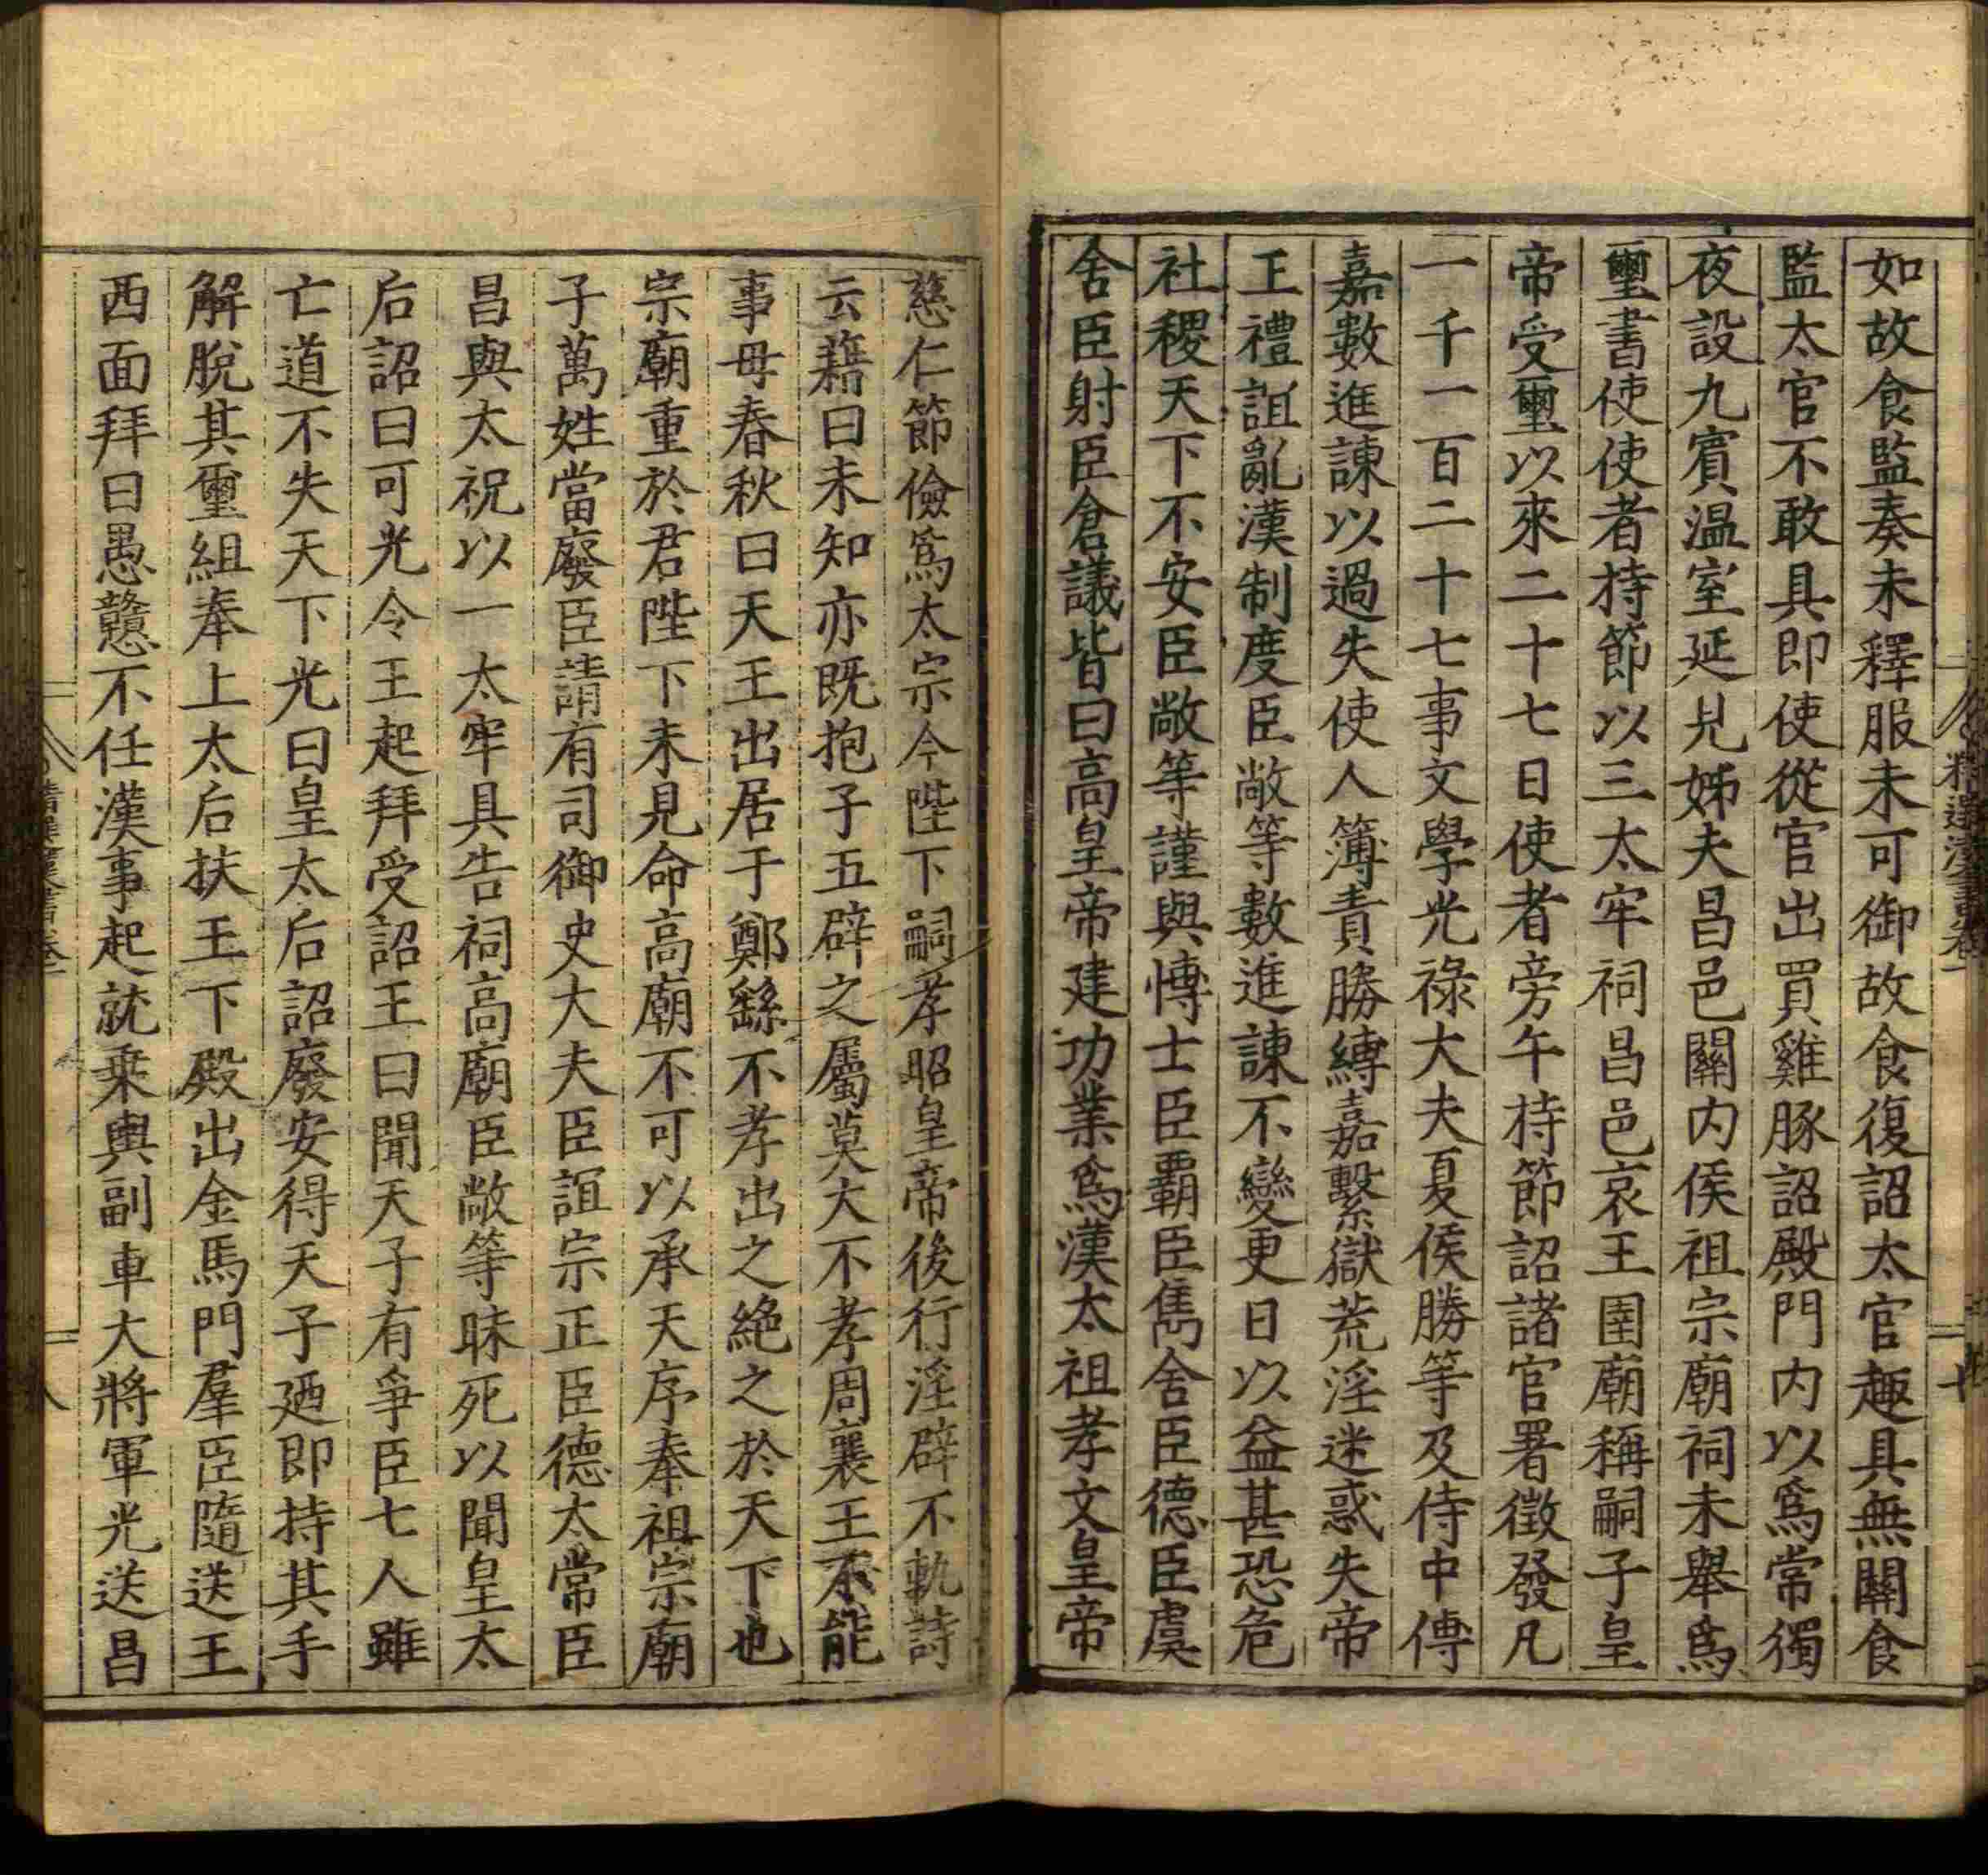 如故食監奏未釋服未可御故食復詔太官趣具無關食
監太官不敢具即使從官出買雞豚詔殿門内以爲常獨
夜設九賓温室延見姊夫昌邑關内侯祖宗廟祠未舉爲
璽書使使者持節以三太牢祠昌邑哀王園廟稱嗣子皇
帝受璽以來二十七日使者旁午持節詔諸官署徵發凡
一千一百二十七事文學光祿大夫夏侯勝等及侍中傅
嘉數進諫以過失使人簿責勝縛嘉繫獄荒淫迷惑失帝
王禮誼亂漢制度臣敞等數進諫不變更日以益甚恐危
社稷天下不安臣敞等謹與博士臣霸臣雋舍臣德臣虞
舍臣射臣倉議皆曰高皇帝建功業爲漢太祖孝文皇帝
慈仁節儉爲太宗今陛下嗣孝昭皇帝後行淫辟不軌詩
云藉曰未知亦既抱子五辟之屬莫大不孝周襄王不能
事母春秋曰天王出居于鄭繇不孝出之絶之於天下也
宗廟重於君陛下未見命高廟不可以承天序奉祖宗廟
子萬姓當廢臣請有司御史大夫臣誼宗正臣德太常臣
昌與太祝以一太牢具告祠高廟臣敞等昧死以聞皇太
后詔曰可光令王起拜受詔王曰聞天子有爭臣七人雖
亡道不失天下光曰皇太后詔廢安得天子廼即持其手
解脫其璽組奉上太后扶王下殿出金馬門羣臣隨送王
西面拜曰愚戇不任漢事起就乗輿副車大將軍光送昌